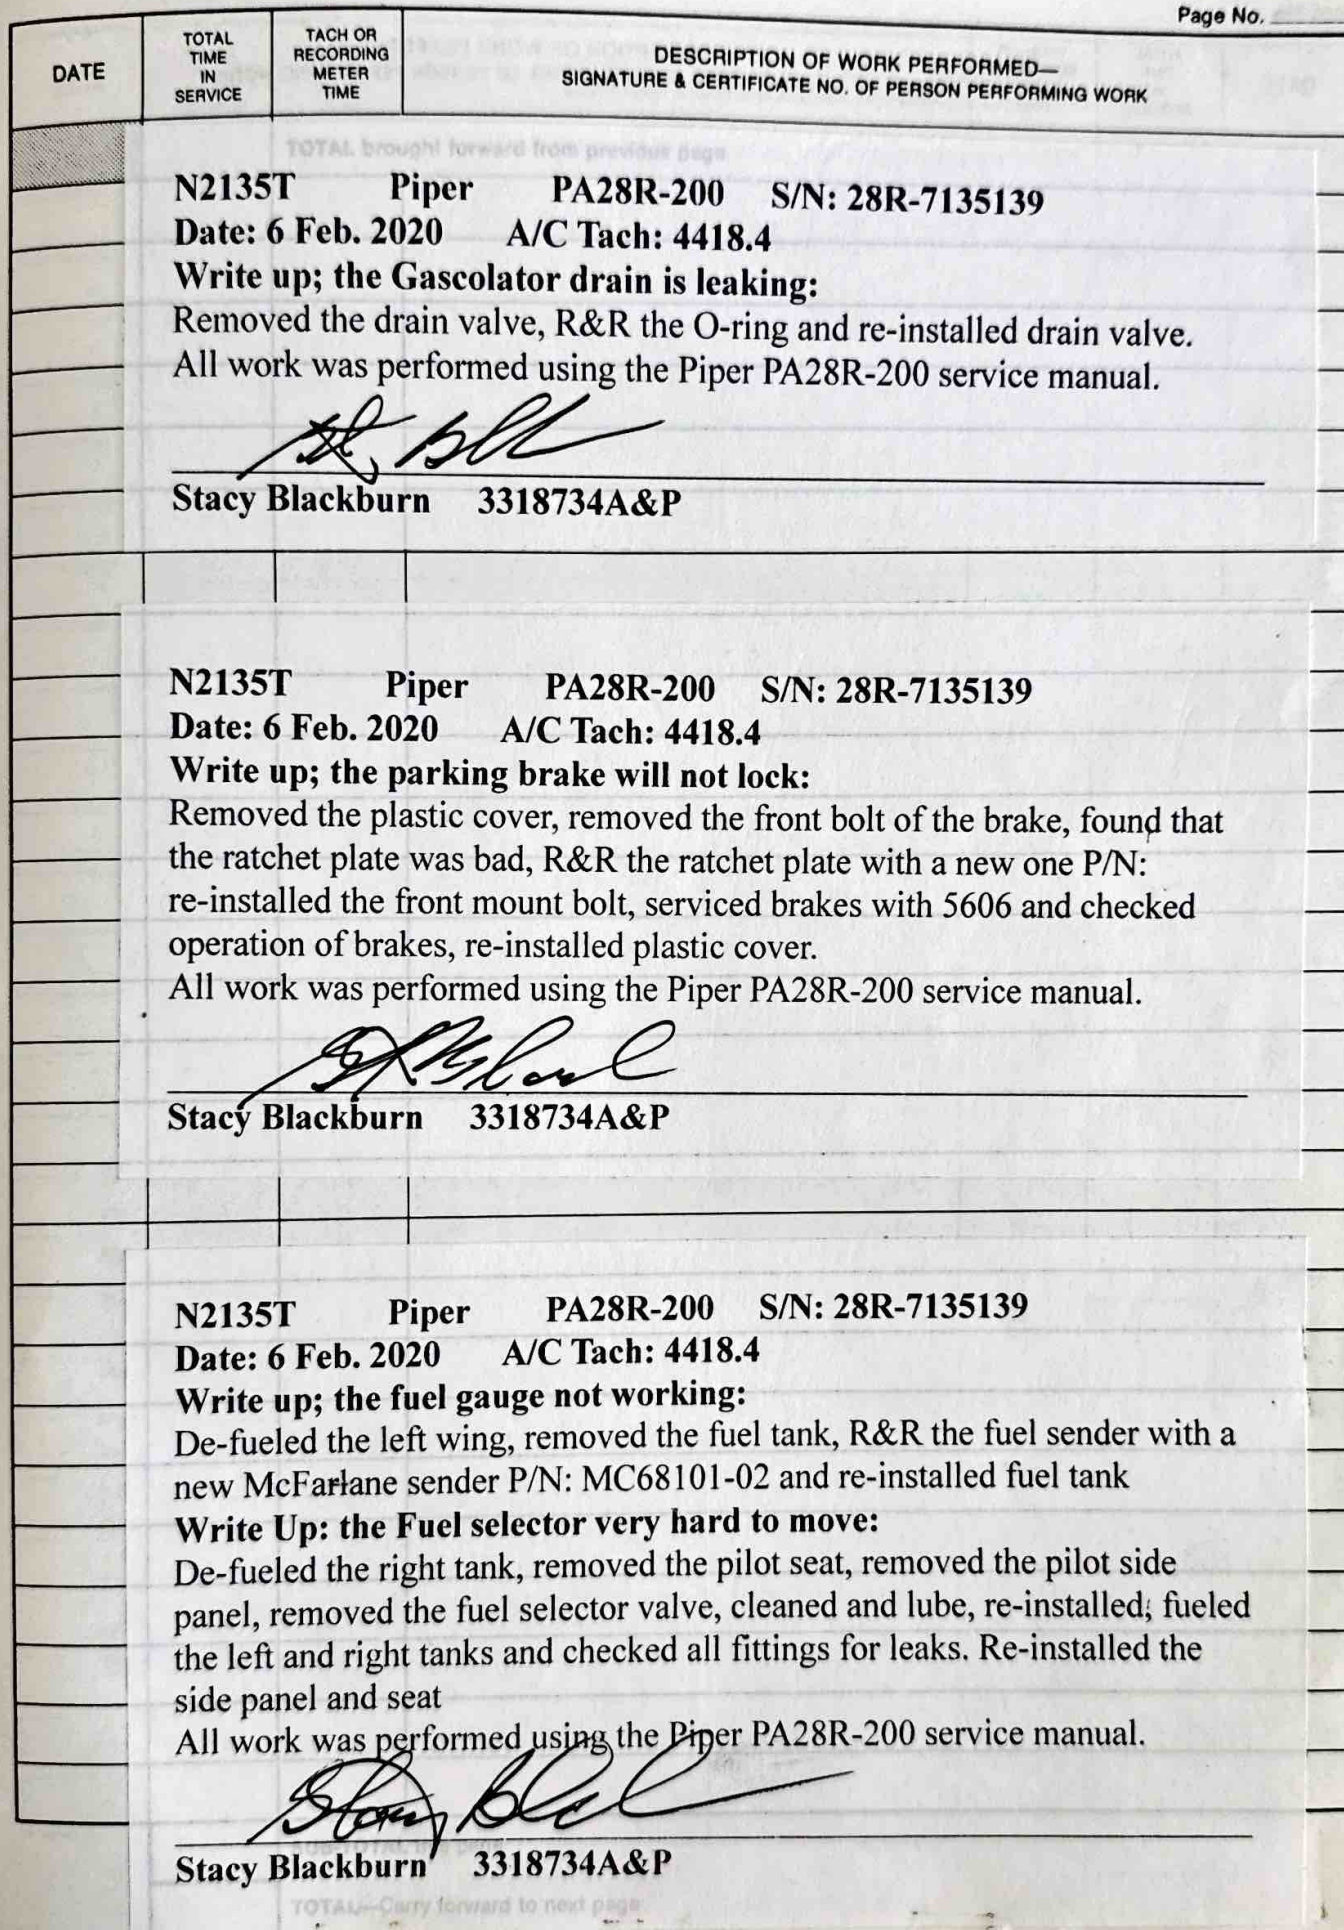 Page No.
DATE
TOTAL
TIME
IN
SERVICE
TACH OR
RECORDING
METER
TIME
DESCRIPTION OF WORK PERFORMED—
SIGNATURE & CERTIFICATE NO. OF PERSON PERFORMING WORK
TOTAL brought forward from previous page
N2135T Piper PA28R-200 S/N: 28R-7135139
Date: 6 Feb. 2020 A/C Tach: 4418.4
Write up; the Gascolator drain is leaking:
Removed the drain valve, R&R the O-ring and re-installed drain valve.
All work was performed using the Piper PA28R-200 service manual.
Stacy Blackburn 3318734A&P
N2135T Piper PA28R-200 S/N: 28R-7135139
Date: 6 Feb. 2020 A/C Tach: 4418.4
Write up; the parking brake will not lock:
Removed the plastic cover, removed the front bolt of the brake, found that
the ratchet plate was bad, R&R the ratchet plate with a new one P/N:
re-installed the front mount bolt, serviced brakes with 5606 and checked
operation of brakes, re-installed plastic cover.
All work was performed using the Piper PA28R-200 service manual.
Stacy Blackburn 3318734A&P
N2135T Piper PA28R-200 S/N: 28R-7135139
Date: 6 Feb. 2020 A/C Tach: 4418.4
Write up; the fuel gauge not working:
De-fueled the left wing, removed the fuel tank, R&R the fuel sender with a
new McFarlane sender P/N: MC68101-02 and re-installed fuel tank
Write Up: the Fuel selector very hard to move:
De-fueled the right tank, removed the pilot seat, removed the pilot side
panel, removed the fuel selector valve, cleaned and lube, re-installed; fueled
the left and right tanks and checked all fittings for leaks. Re-installed the
side panel and seat
All work was performed using the Piper PA28R-200 service manual.
Stacy Blackburn 3318734A&P
TOTAL—Carry forward to next page